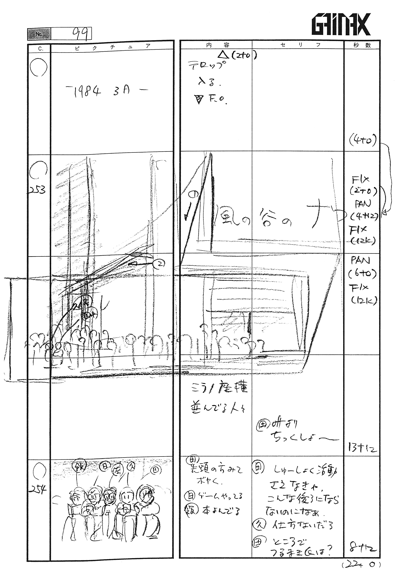 GAINAX
99
C
ピクチュア
内容
セリフ
秒数
-1984 3月-
△(2+0)
テロップ
入る.
▼F.O.
(4+0)
253
①
②
風の谷のナ
FIX
(2+0)
PAN
(4+12)
FIX
(12K)
PAN
(6+0)
FIX
(12K)
ミラノ座横
並んでる人々
ちっくしょ〜
13+12
254
先頭の方みて
ボヤく.
ゲームやってる
本よんでる
しゅーしょく活動
さえなきゃ,
こんな後ろになら
ないのになぁ.
仕方ないだろ
ところで
つるまき氏は?
8+12
(22+0)